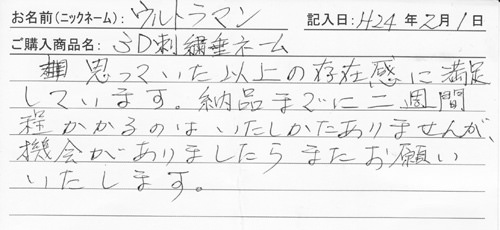 お名前(ニックネーム): ウルトラマン 記入日: H24 年 2 月 1 日
ご購入商品名: 3D刺繍垂ネーム
思っていた以上の存在感に満足
しています。納品までに二週間
程かかるのはいたしかたありませんが、
機会がありましたらまたお願い
いたします。